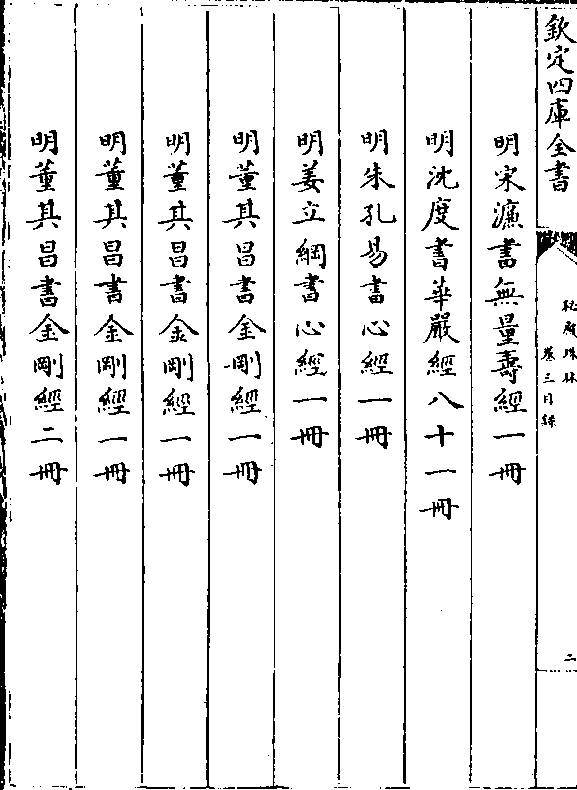 欽定四庫全書
秘殿珠林
卷三目錄
二
明宋濂書無量壽經一冊
明沈度書華嚴經八十一冊
明朱孔易書心經一冊
明姜立綱書心經一冊
明董其昌書金剛經一冊
明董其昌書金剛經一冊
明董其昌書金剛經一冊
明董其昌書金剛經二冊